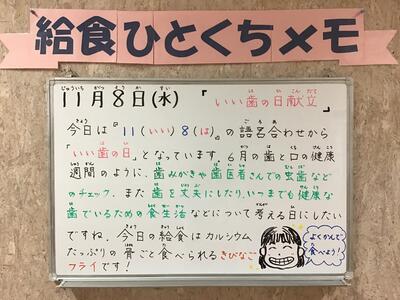 給食ひとくちメモ
11月8日(水) 「いい歯の日献立」
今日は『11(いい)8(は)』の語呂合わせから
「いい歯の日」となっています。6月の歯と口の健康
週間のように、歯みがきや歯医者さんでの虫歯など
のチェック、また歯を丈夫にしたり、いつまでも健康な
歯でいるための食生活などについて考える日にしたい
ですね。今日の給食はカルシウム
たっぷりの骨ごと食べられるきびなご
フライです!
よくかんで
食べよう!